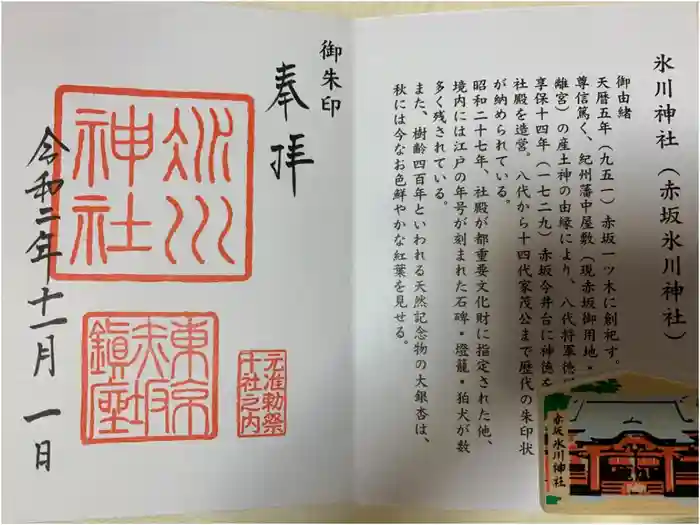 氷川神社(赤坂氷川神社)
御由緒
天暦五年(九五一)赤坂一ツ木に創祀す。
尊信篤く、紀州藩中屋敷(現赤坂御用地・
離宮)の産土神の由縁により、八代将軍徳
享保十四年(一七二九)赤坂今井台に神徳を
社殿を造営。八代から十四代家茂公まで歴代の朱印状
が納められている。
昭和二十七年、社殿が都重要文化財に指定された他、
境内には江戸の年号が刻まれた石碑・燈籠・狛犬が数
多く残されている。
また、樹齢四百年といわれる天然記念物の大銀杏は、
秋には今なお色鮮やかな紅葉を見せる。
赤坂氷川神社
御朱印
奉拝
氷川
神社
元准勅祭
十社之内
東京
赤坂
鎮座
令和二年十一月一日